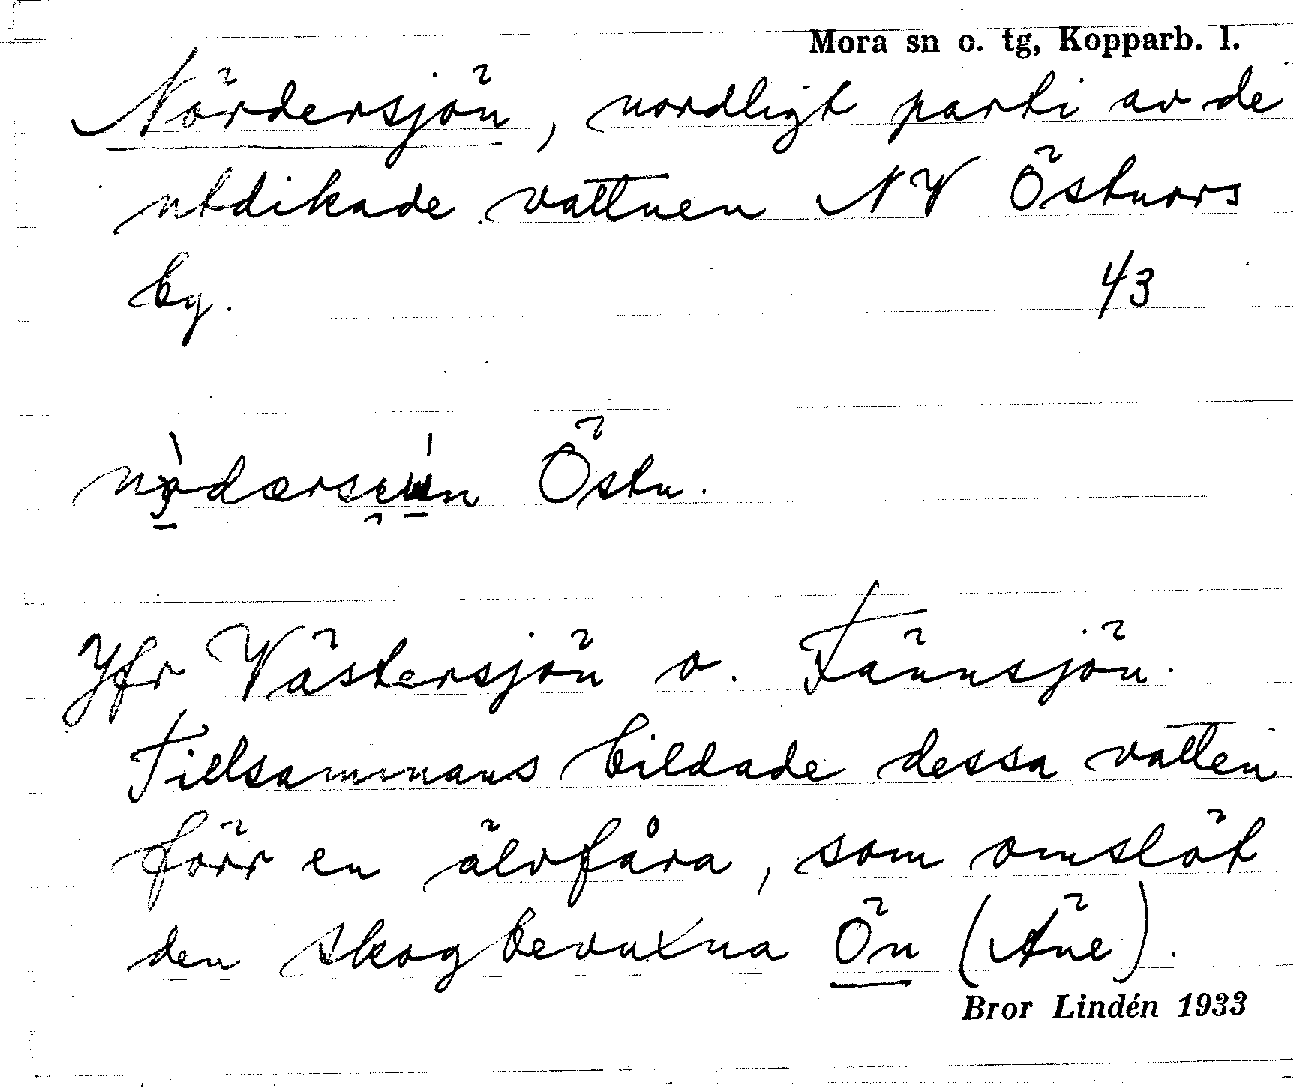 Mora sn o. tg, Kopparb. l.
Nördersjön, nordligt parti av de
utdikade vattnen NV Östnors
by. 43
Östn.
Jfr Västersjön o. Tännsjön.
Tillsammans bildade dessa vatten
förr en älvfåra, som omslöt
den skogbevuxna Ön (Äne).
Bror Lindén 1933